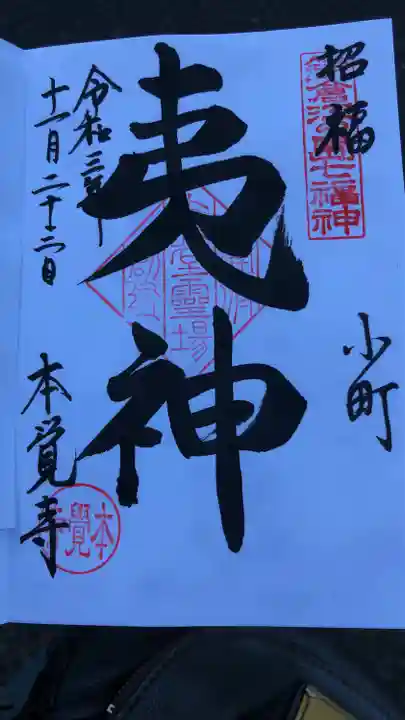 招福
鎌倉江の島七福神
小町
夷神
霊場
令和三年
十一月二十三日
本覚寺
本覺寺